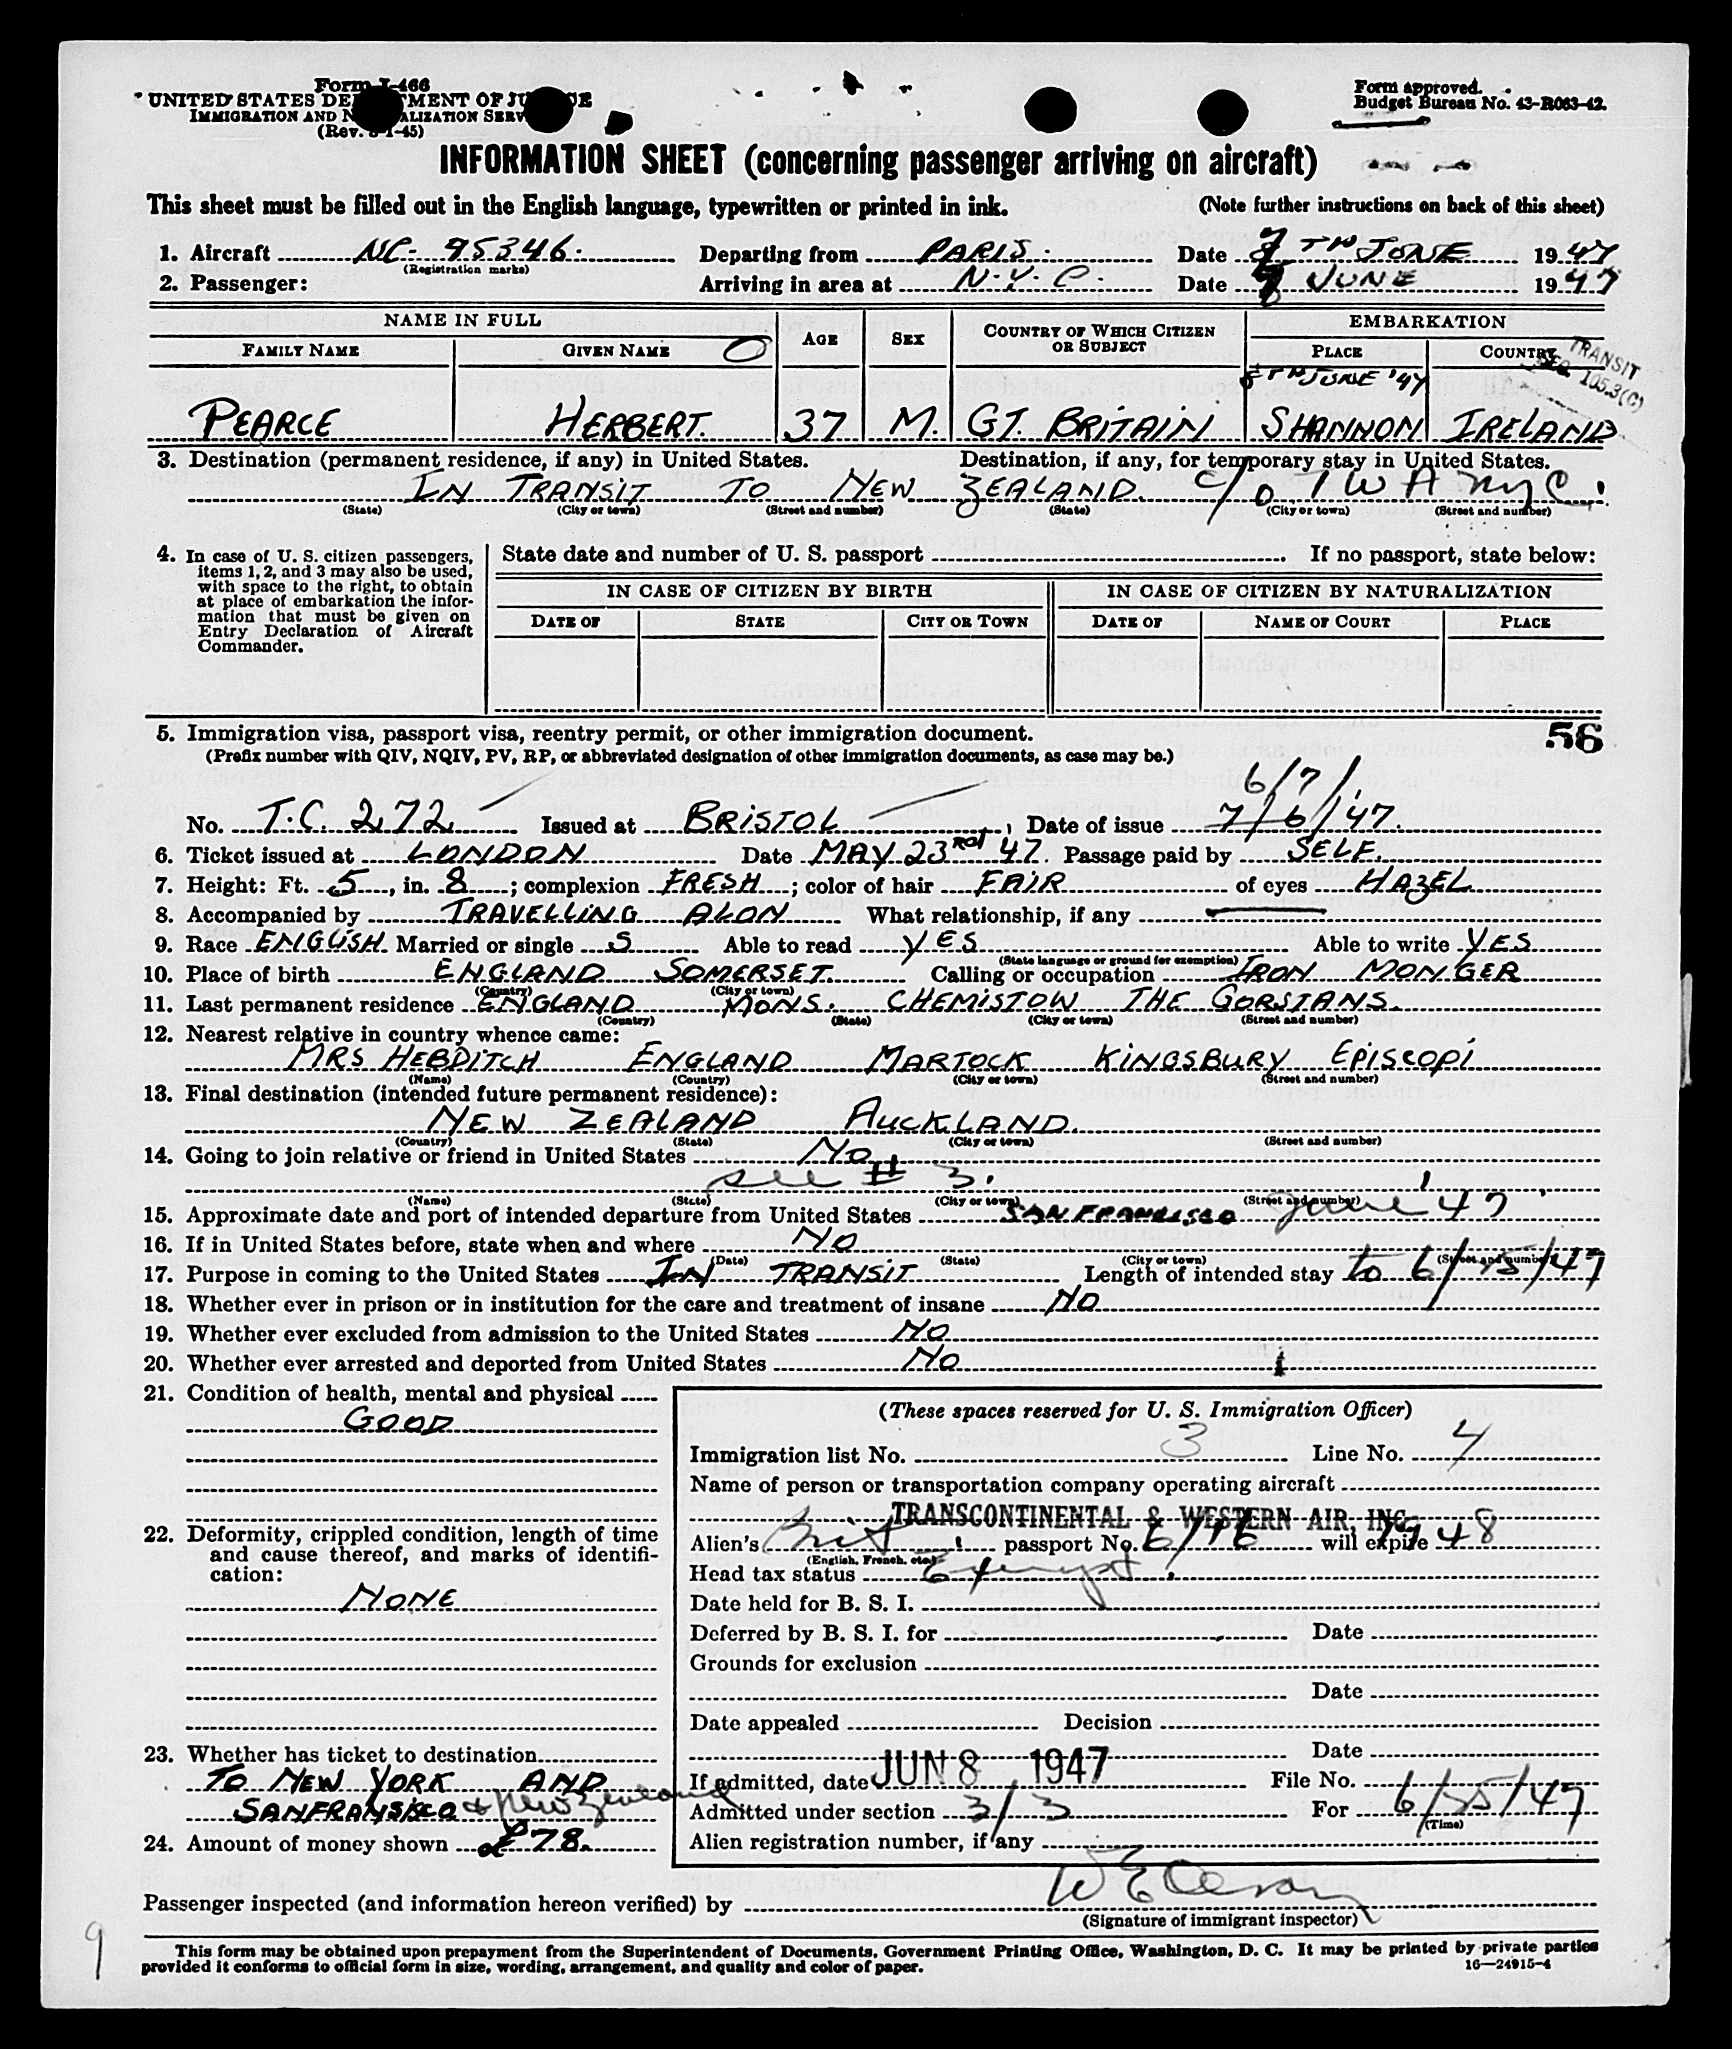 Form I-466
UNITED STATES DEPARTMENT OF JUSTICE
IMMIGRATION AND NATURALIZATION SERV
(Rev. 8-1-45)
Form approved.
Budget Bureau No. 43-R063-42.
INFORMATION SHEET (concerning passenger arriving on aircraft)
This sheet must be filled out in the English language, typewritten or printed in ink. (Note further instructions on back of this sheet)
1. Aircraft NC- 95346. Departing from PARIS. Date 7TH JUNE 1947
(Registration marks)
2. Passenger: Arriving in area at N.Y.C. Date 8 JUNE 1947
NAME IN FULL AGE SEX COUNTRY OF WHICH CITIZEN OR SUBJECT EMBARKATION
FAMILY NAME GIVEN NAME PLACE COUNTRY
TRANSIT
SEC. 105.3(C)
8TH JUNE '47
PEARCE HERBERT. 37 M. GT. BRITAIN SHANNON IRELAND
3. Destination (permanent residence, if any) in United States. Destination, if any, for temporary stay in United States.
IN TRANSIT TO NEW ZEALAND. c/o TWA NYC.
(State) (City or town) (Street and number) (State) (City or town) (Street and number)
4. In case of U. S. citizen passengers, items 1, 2, and 3 may also be used, with space to the right, to obtain at place of embarkation the information that must be given on Entry Declaration of Aircraft Commander.
State date and number of U. S. passport If no passport, state below:
IN CASE OF CITIZEN BY BIRTH IN CASE OF CITIZEN BY NATURALIZATION
DATE OF STATE CITY OR TOWN DATE OF NAME OF COURT PLACE
56
5. Immigration visa, passport visa, reentry permit, or other immigration document.
(Prefix number with QIV, NQIV, PV, RP, or abbreviated designation of other immigration documents, as case may be.)
6/7/
No. T.C. 272 Issued at BRISTOL, Date of issue 7/6/47.
6. Ticket issued at LONDON Date MAY 23RD 47. Passage paid by SELF.
7. Height: Ft. 5, in. 8; complexion FRESH; color of hair FAIR of eyes HAZEL
8. Accompanied by TRAVELLING ALON What relationship, if any
9. Race ENGLISH Married or single S Able to read YES Able to write YES
(State language or ground for exemption)
10. Place of birth ENGLAND SOMERSET. Calling or occupation IRON MONGER
(Country) (City or town)
11. Last permanent residence ENGLAND MONS. CHEMISTOW THE GORSTANS.
(Country) (State) (City or town) (Street and number)
12. Nearest relative in country whence came:
MRS HEBDITCH ENGLAND MARTOCK KINGSBURY EPISCOPI
(Name) (Country) (City or town) (Street and number)
13. Final destination (intended future permanent residence):
NEW ZEALAND AUCKLAND.
(Country) (State) (City or town) (Street and number)
14. Going to join relative or friend in United States NO
see # 3.
(Name) (State) (City or town) (Street and number)
15. Approximate date and port of intended departure from United States SAN FRANCISCO June '47
16. If in United States before, state when and where NO
(Date) (State) (City or town) (Street and number)
17. Purpose in coming to the United States IN TRANSIT Length of intended stay to 6/15/47
18. Whether ever in prison or in institution for the care and treatment of insane NO
19. Whether ever excluded from admission to the United States NO
20. Whether ever arrested and deported from United States NO
21. Condition of health, mental and physical
GOOD
22. Deformity, crippled condition, length of time and cause thereof, and marks of identification:
NONE
23. Whether has ticket to destination
TO NEW YORK AND
SANFRANSISCO & New Zealand
24. Amount of money shown £78.
(These spaces reserved for U. S. Immigration Officer)
Immigration list No. 3 Line No. 4
Name of person or transportation company operating aircraft
TRANSCONTINENTAL & WESTERN AIR, INC.
Alien's Brit. passport No. 6/716 will expire 1948
(English, French, etc.)
Head tax status Exempt.
Date held for B. S. I.
Deferred by B. S. I. for Date
Grounds for exclusion
Date
Date appealed Decision
Date
If admitted, date JUN 8 1947 File No.
Admitted under section 3/3 For 6/15/47
(Time)
Alien registration number, if any
Passenger inspected (and information hereon verified) by
(Signature of immigrant inspector)
9
This form may be obtained upon prepayment from the Superintendent of Documents, Government Printing Office, Washington, D. C. It may be printed by private parties
provided it conforms to official form in size, wording, arrangement, and quality and color of paper. 16—24915-4